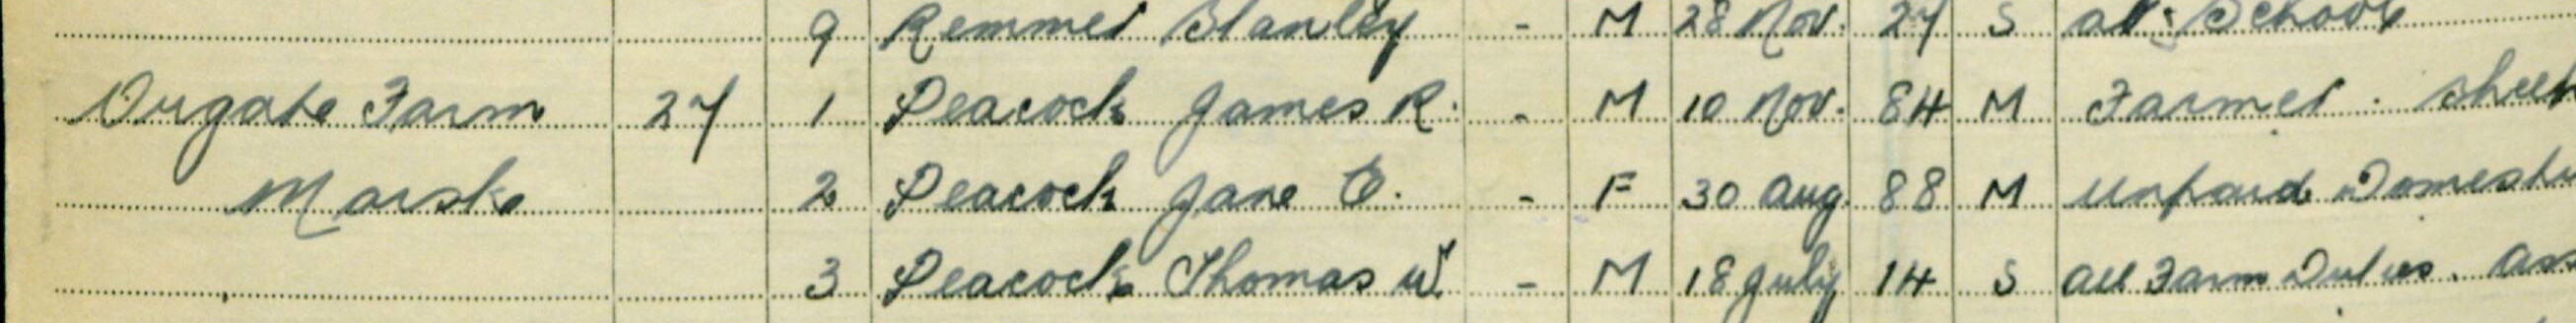 9 Remmer Stanley - M 28 Nov. 27 S at School
Orgate Farm 27 1 Peacock James R. - M 10 Nov. 84 M Farmer. Sheep
Marske 2 Peacock Jane E. - F 30 Aug 88 M Unpaid Domestic
3 Peacock Thomas W. - M 18 July 14 S All Farm Duties. Ass